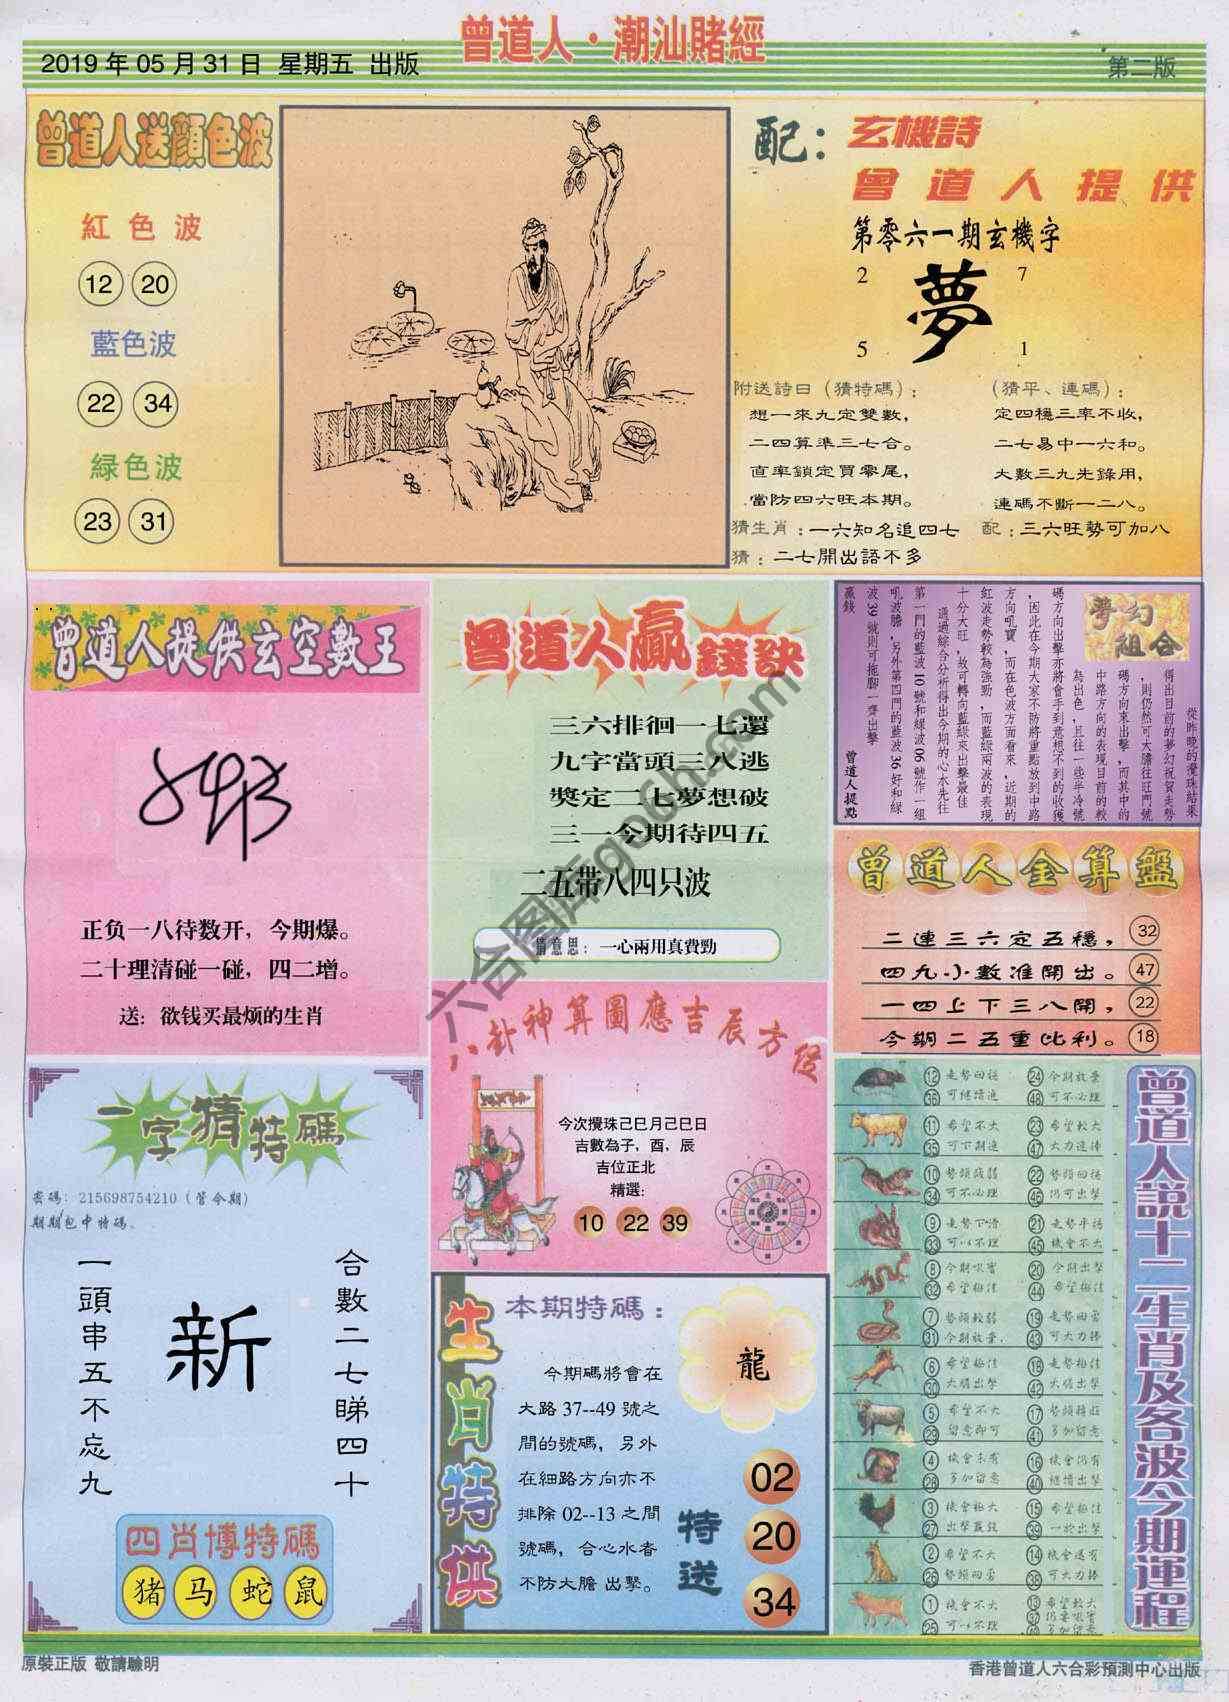 曾道人·潮汕賭經
2019 年 05 月 31 日 星期五 出版
第二版
曾道人送顏色波
紅色波
12 20
藍色波
22 34
緑色波
23 31
配：
玄機詩
曾道人提供
第零六一期玄機字
2 7
夢
5 1
附送詩曰（猜特碼）：
想一來九定雙數，
二四算準三七合。
直率鎖定買零尾，
當防四六旺本期。
（猜平、連碼）：
定四穩三率不收，
二七易中一六和。
大數三九先錄用，
連碼不斷一二八。
猜生肖：一六知名追四七 配：三六旺勢可加八
猜：二七開出語不多
曾道人提供玄空數王
正负一八待数开，今期爆。
二十理清碰一碰，四二增。
送：欲钱买最烦的生肖
曾道人贏錢訣
三六排徊一七還
九字當頭三八逃
獎定二七夢想破
三一今期待四五
二五带八四只波
猜意思：一心兩用真費勁
夢幻組合
從昨晚的攪珠結果
得出目前的夢幻祝賀走勢
，則仍然可大膽往旺門號
碼方向來出擊，而其中的
中路方向的表現目前的較
為出色，且往一些半冷號
碼方向出擊亦將會手到意想不到的收獲
，因此在今期大家不防將重點放到中路
方向吼寶，而在色波方面看來，近期的
紅波走勢較為強勁，而藍綠兩波的表現
十分大旺，故可轉向藍綠來出擊最佳
通過綜合分析得出今期的心水先往
第一門的藍波 10 號和綠波 06 號作一組
吼波膽，另外第四門的藍波 36 好和綠
波 39 號則可拖腳一齊出擊
贏錢
曾道人提點
曾道人金算盤
二連三六定五穩， 32
四九小數准開出。 47
一四上下三八開， 22
今期二五重比利。 18
八卦神算圖應吉辰方位
今次攪珠己巳月己巳日
吉數為子，酉，辰
吉位正北
精選：
10 22 39
一字猜特碼
密碼：215698754210（管令期）
期期包中特碼。
合數二七睇四十
新
一頭串五不忘九
四肖博特碼
猪 马 蛇 鼠
生肖特供
本期特碼：
龍
今期碼將會在
大路 37--49 號之
間的號碼，另外
在細路方向亦不
排除 02--13 之間
號碼，合心水者
不防大膽 出擊。
特送
02
20
34
曾道人說十二生肖及各波今期運程
12 走勢回穩 24 今期放棄
36 可继續進 48 可不必理
11 希望不大 23 希望較大
35 可下期進 47 大力追捧
10 勢頭減弱 22 勢頭回穩
34 可不必理 46 仍可出擊
9 走勢下滑 21 走勢平穩
33 可以不理 45 機會不大
8 今期吼寶 20 今期出擊
32 希望極佳 44 希望極佳
7 勢頭較弱 19 走勢回雲
31 今期放棄 43 可大力捧
6 希望極佳 18 走勢極佳
30 大膽出擊 42 大膽出擊
5 希望不大 17 勢頭轉旺
29 留意即可 41 多加留意
4 機會未有 16 機會仍有
28 多加留意 40 继續出擊
3 機會極大 15 希望極佳
27 出擊贏錢 39 一於出擊
2 希望不大 14 機會還有
26 勢頭回雲 38 可大力捧
1 機會不大 13 希望較大
25 可以不理 37 仍要吼寶
49 多加留意
六合图库goch.com
原裝正版 敬請驗明
香港曾道人六合彩預測中心出版